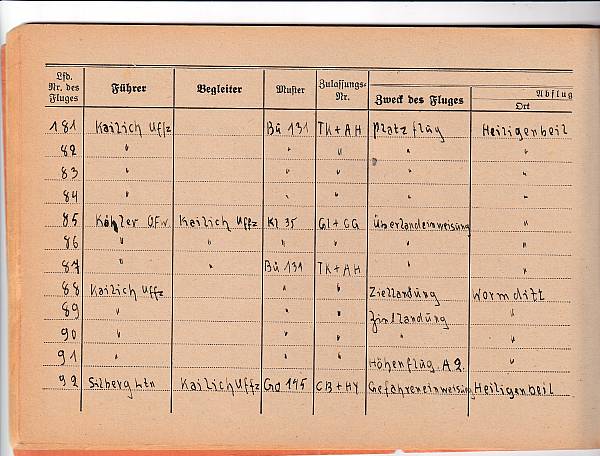 Lfd. Nr. des Fluges Führer Begleiter Muster Zulassungs-Nr. Zweck des Fluges Abflug Ort
181 Kailich Uffz Bü 131 TK+AH Platzflug Heiligenbeil
82 " " " " "
83 " " " " "
84 " " " " "
85 Köhler Ofw. Kailich Uffz Kl 35 GI+GG Überlandeinweisung "
86 " " " " " "
87 " " Bü 131 TK+AH "
88 Kailich Uffz " " Ziellandung Wormditt
89 " " " Ziellandung "
90 " " " "
91 " " " Höhenflug A2. "
92 Silberg Ltn Kailich Uffz Go 145 CB+HY Gefahreneinweisung Heiligenbeil